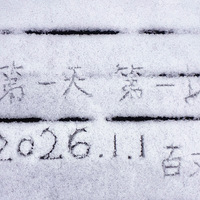 第一天 第一
2026.1.1 百